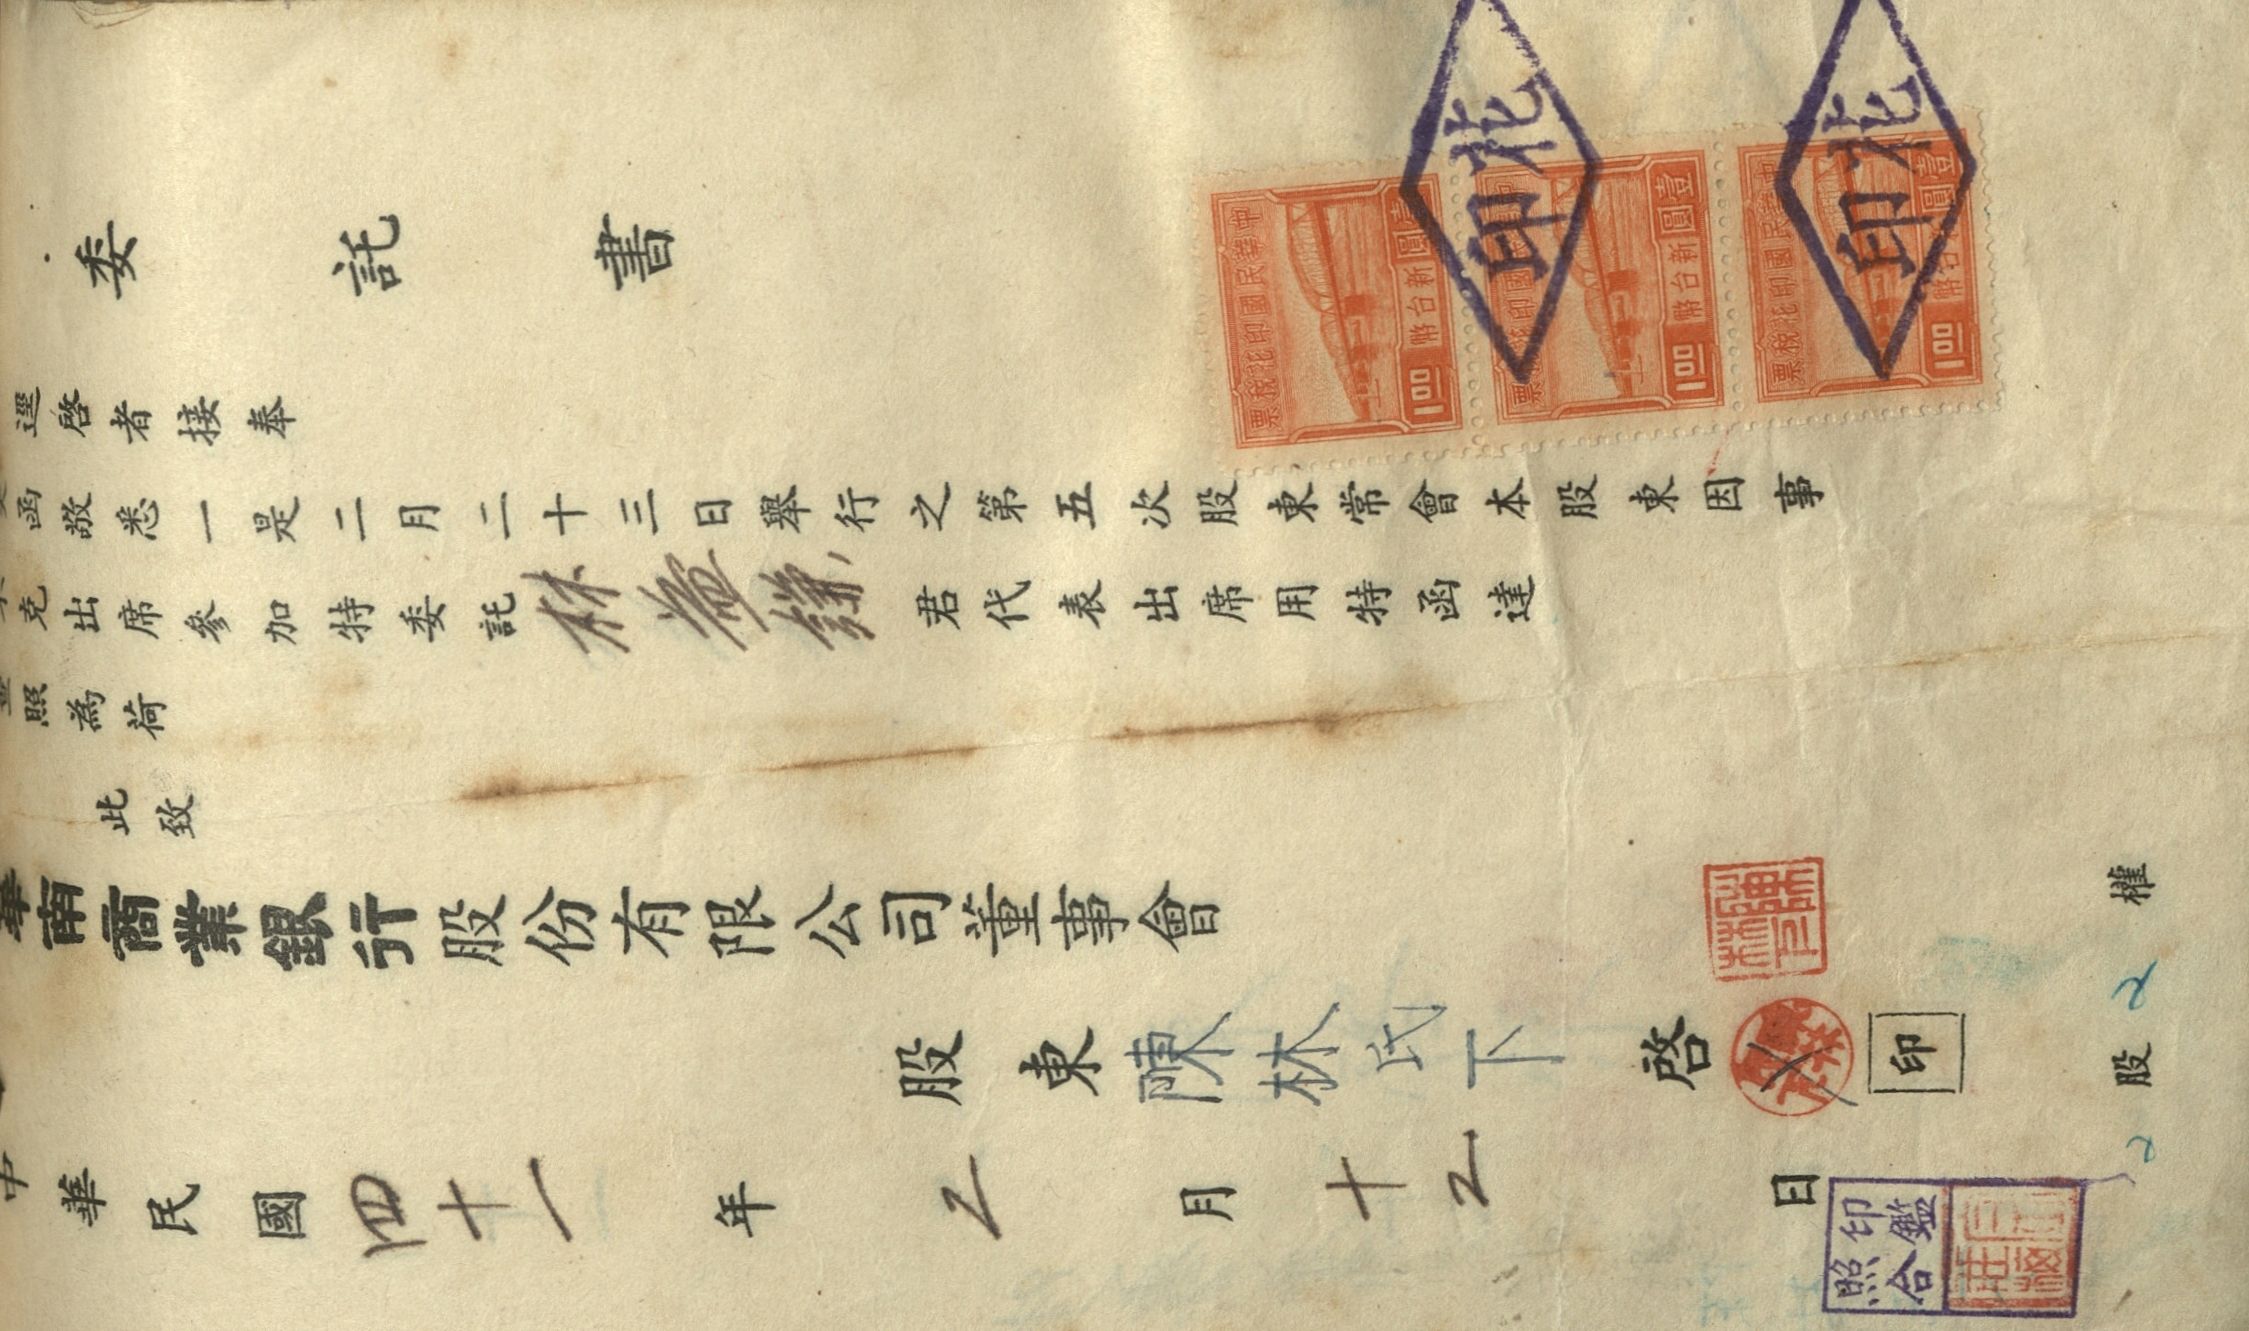 委託書
逕啓者接奉
函敬悉一是二月二十三日舉行之第五次股東常會本股東因事
克出席參加特委託林君代表出席用特函達
照為荷
此致
華南商業銀行股份有限公司董事會
股東陳林氏下啓 印
中華民國四十一年2月十2日
權2股2
印鑑照合
中華民國印花稅票
壹圓
新台幣
1.00
中華民國印花稅票
壹圓
新台幣
1.00
中華民國印花稅票
壹圓
新台幣
1.00